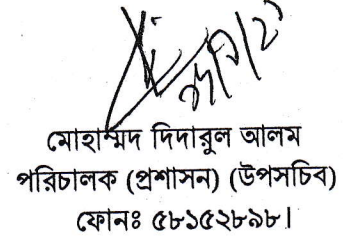 মোহাম্মদ দিদারুল আলম
পরিচালক (প্রশাসন) (উপসচিব)
ফোনঃ ৫৮১৫২৮৯৮।